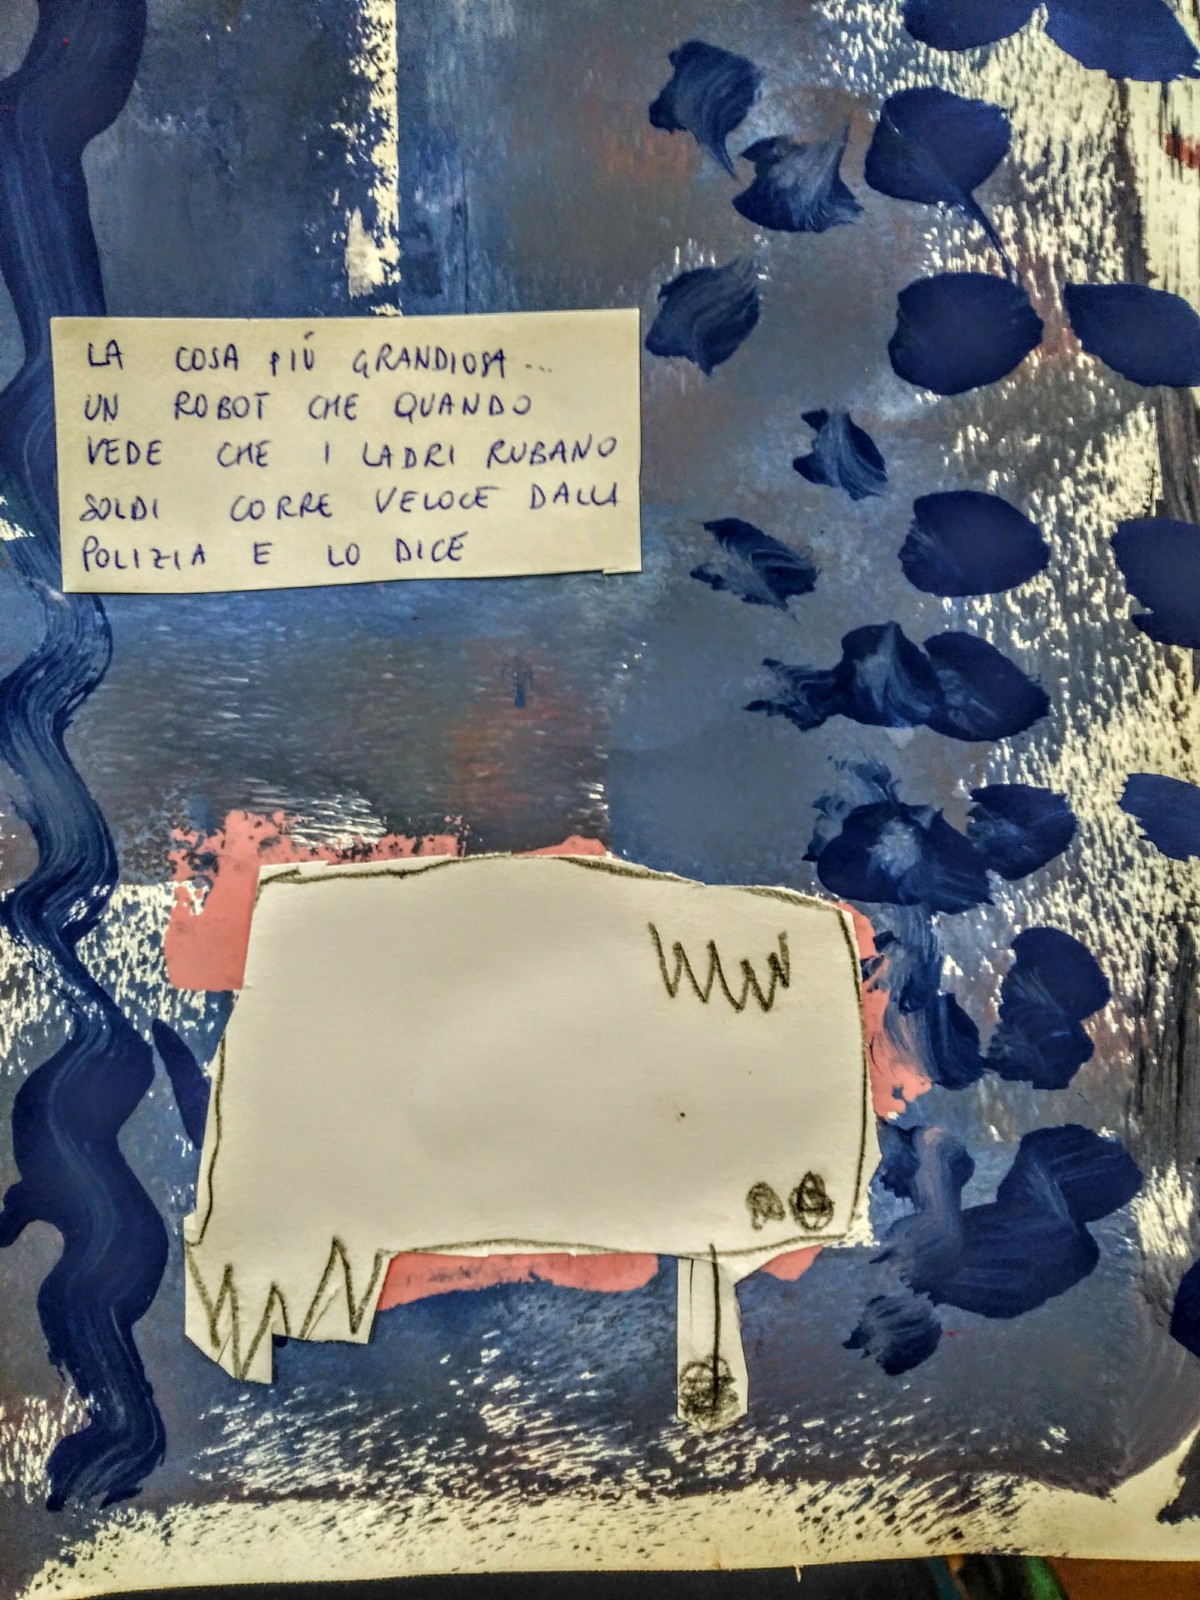 LA COSA PIÙ GRANDIOSA...
UN ROBOT CHE QUANDO
VEDE CHE I LADRI RUBANO
SOLDI CORRE VELOCE DALLA
POLIZIA E LO DICE